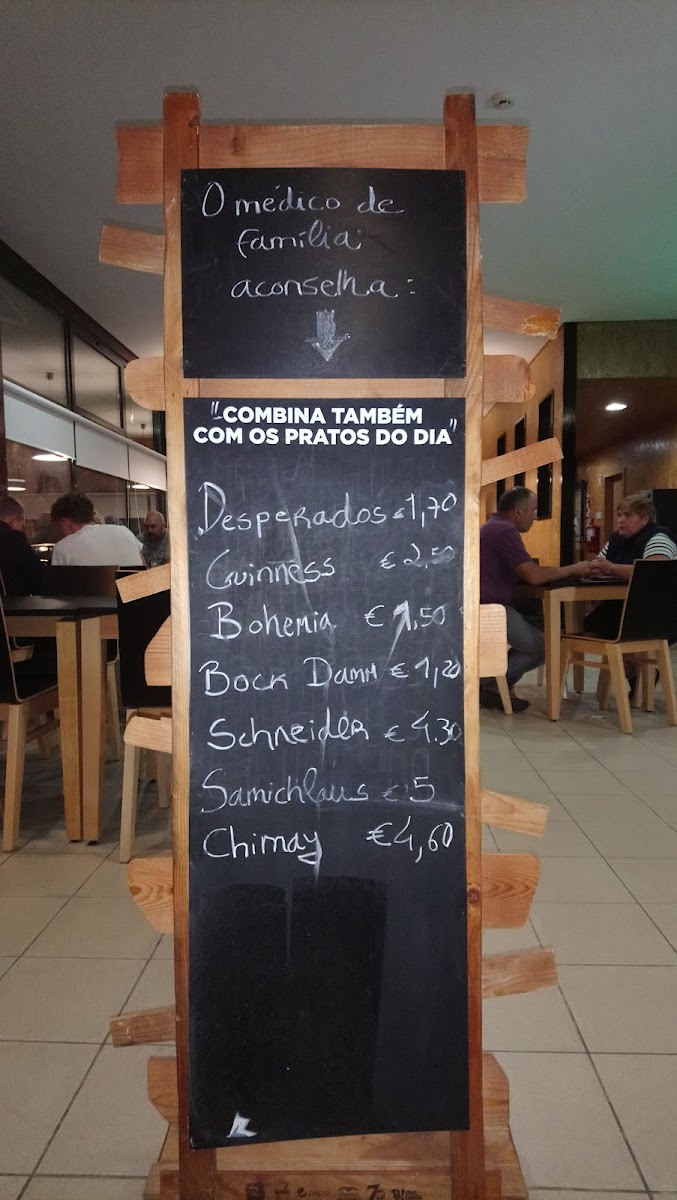 O médico de
família
aconselha:
"COMBINA TAMBÉM
COM OS PRATOS DO DIA"
Desperados €1,70
Guinness € 2,50
Bohemia € 1,50
Bock Damm € 1,20
Schneider € 4.30
Samichlaus € 5
Chimay €4,60